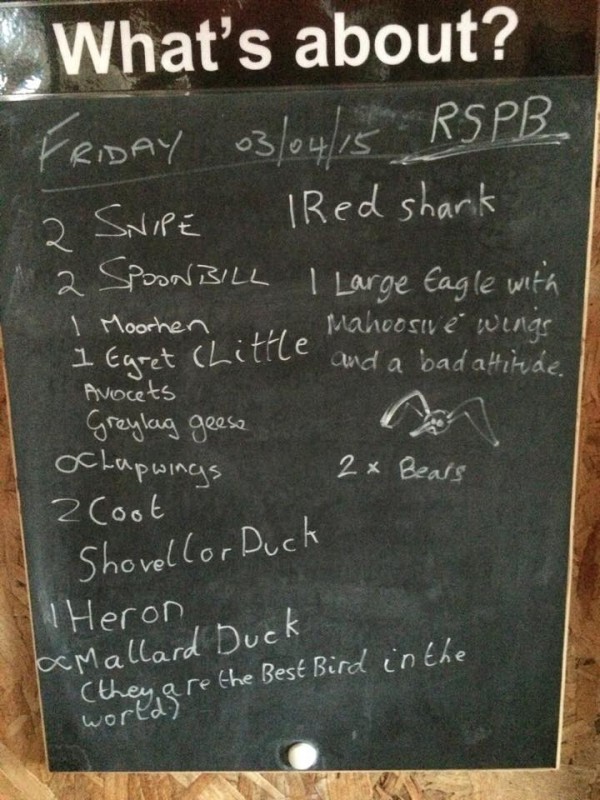 What's about?
FRIDAY 03/04/15 RSPB
2 SNIPE
2 SPOONBILL
1 Moorhen
1 Egret (Little
Avocets
Greylag geese
∝ Lapwings
2 Coot
Shovellor Duck
1 Heron
∝ Mallard Duck
(they are the Best Bird in the
world)
1 Red shark
1 Large Eagle with
Mahoosive wings
and a bad attitude.
2 x Bears